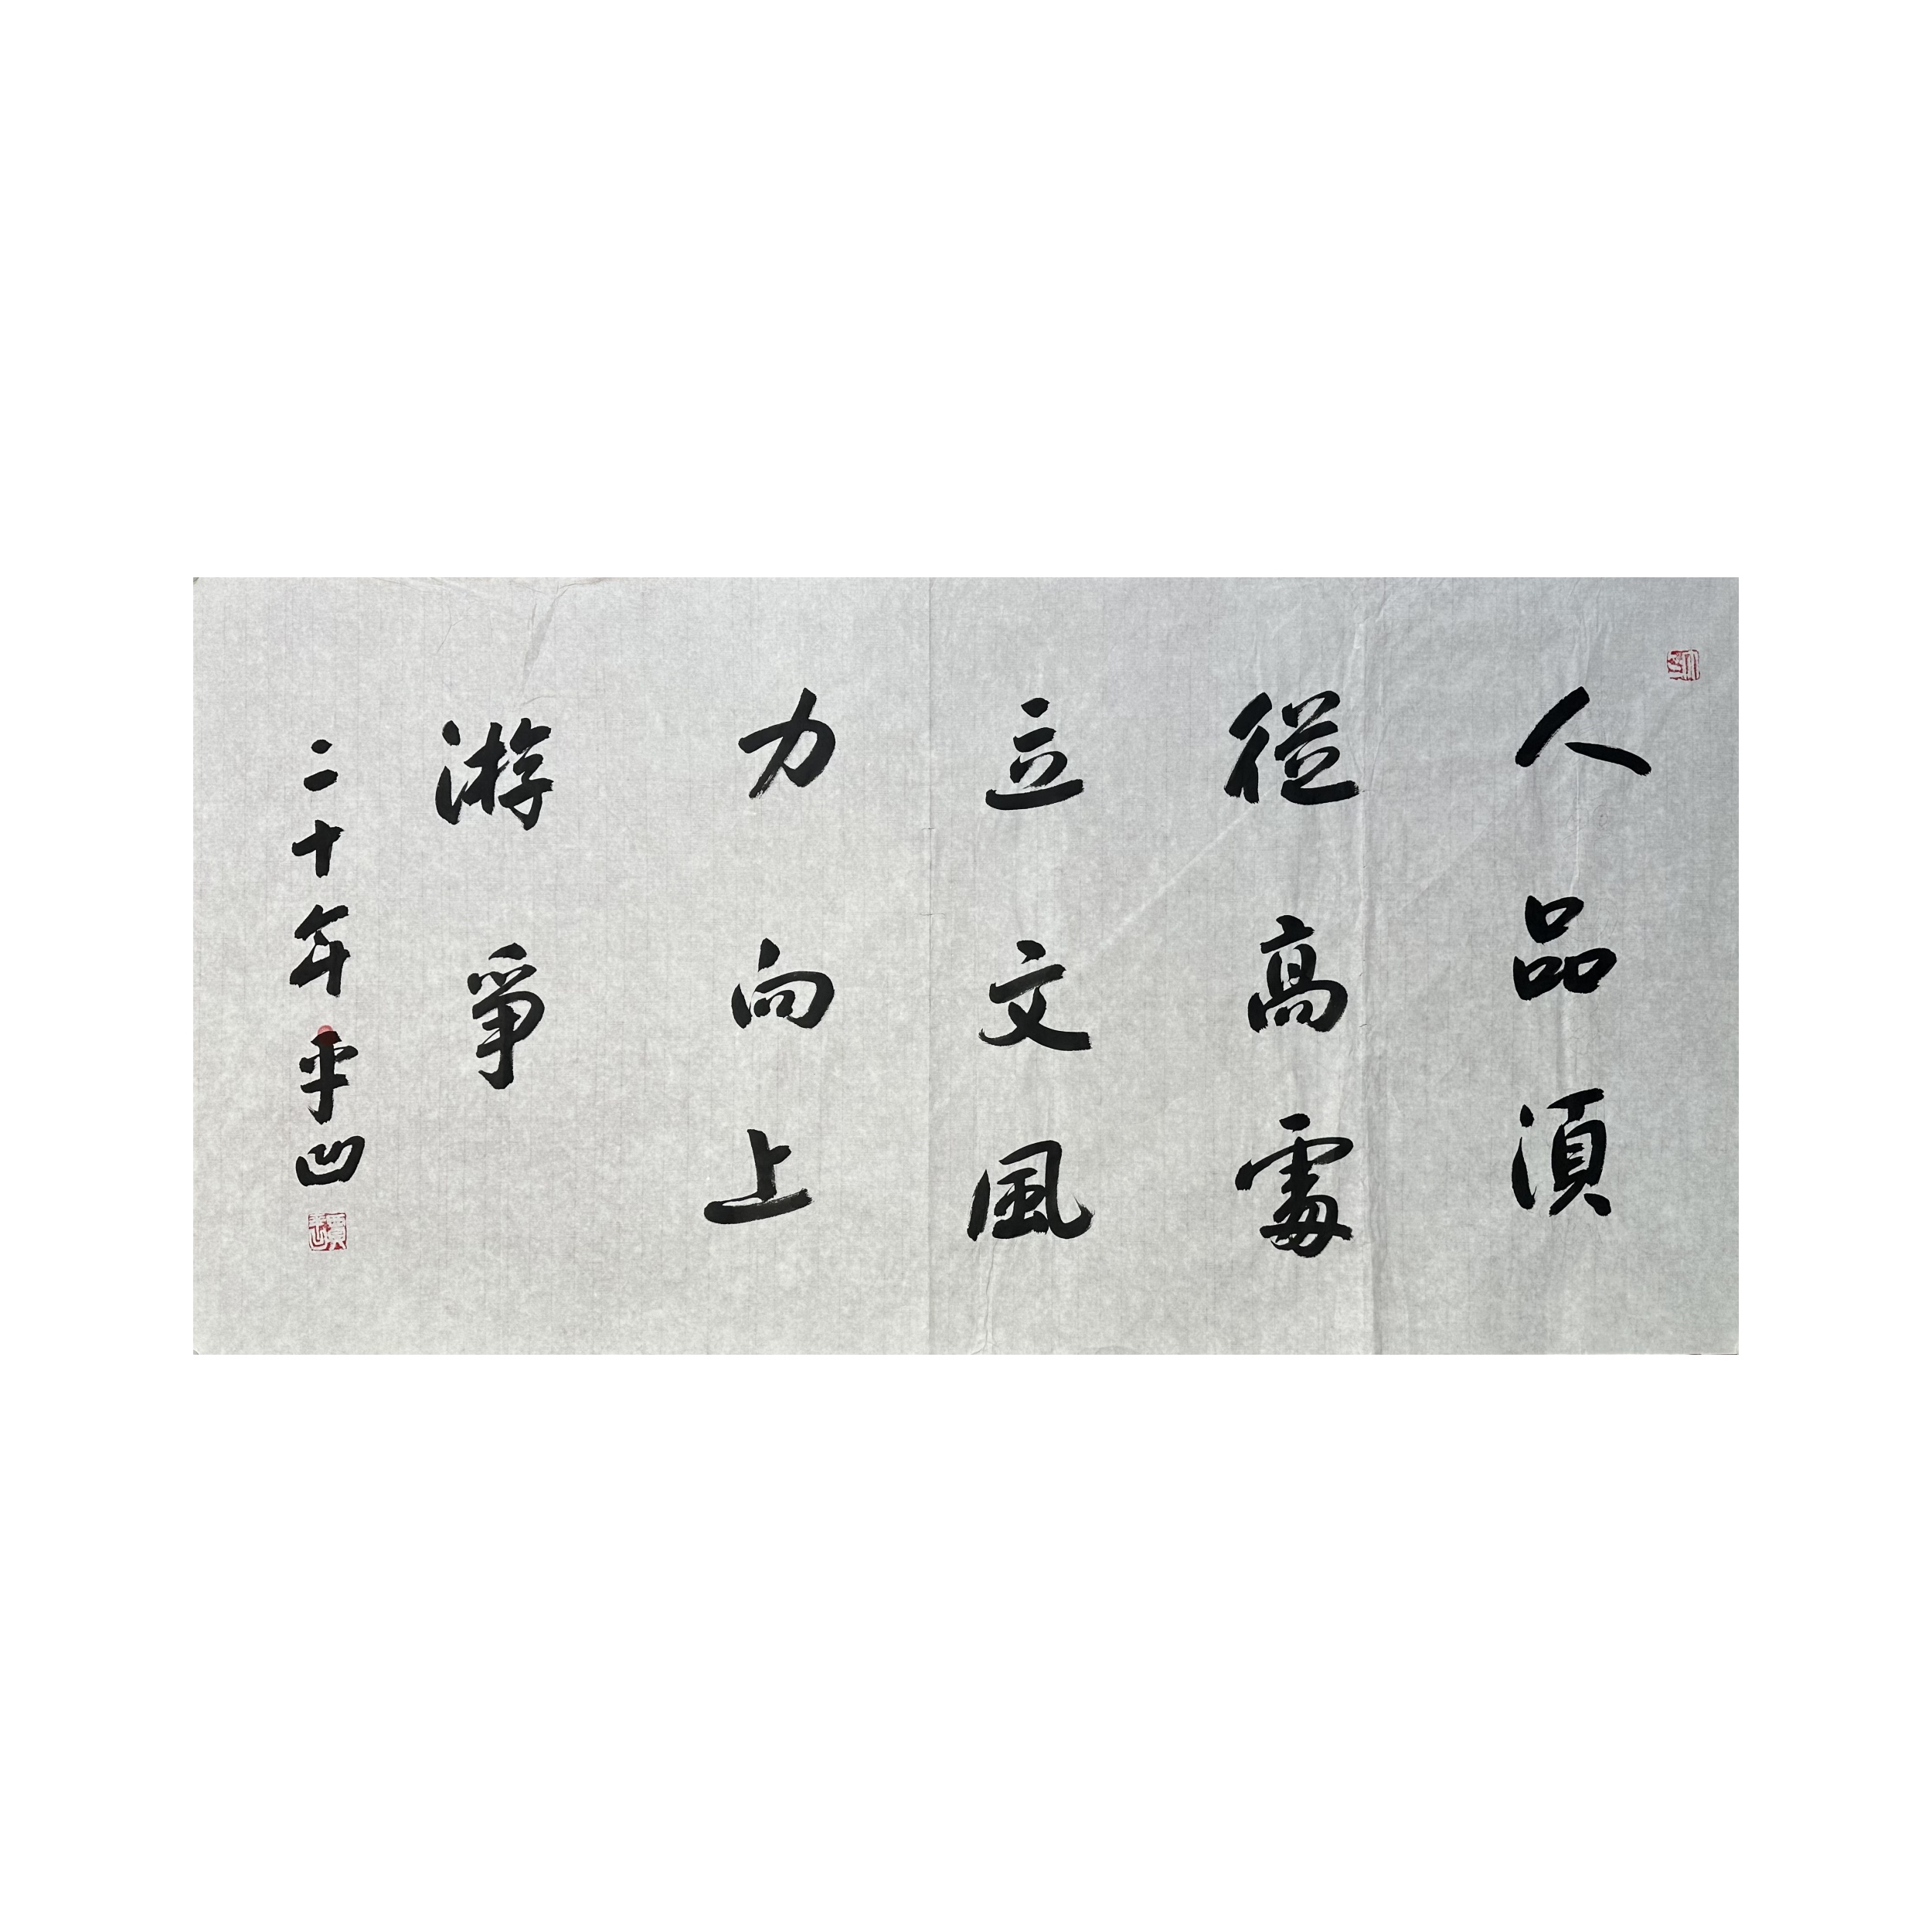 人品須
從高處
立文風
力向上
游爭
二十年 平凹